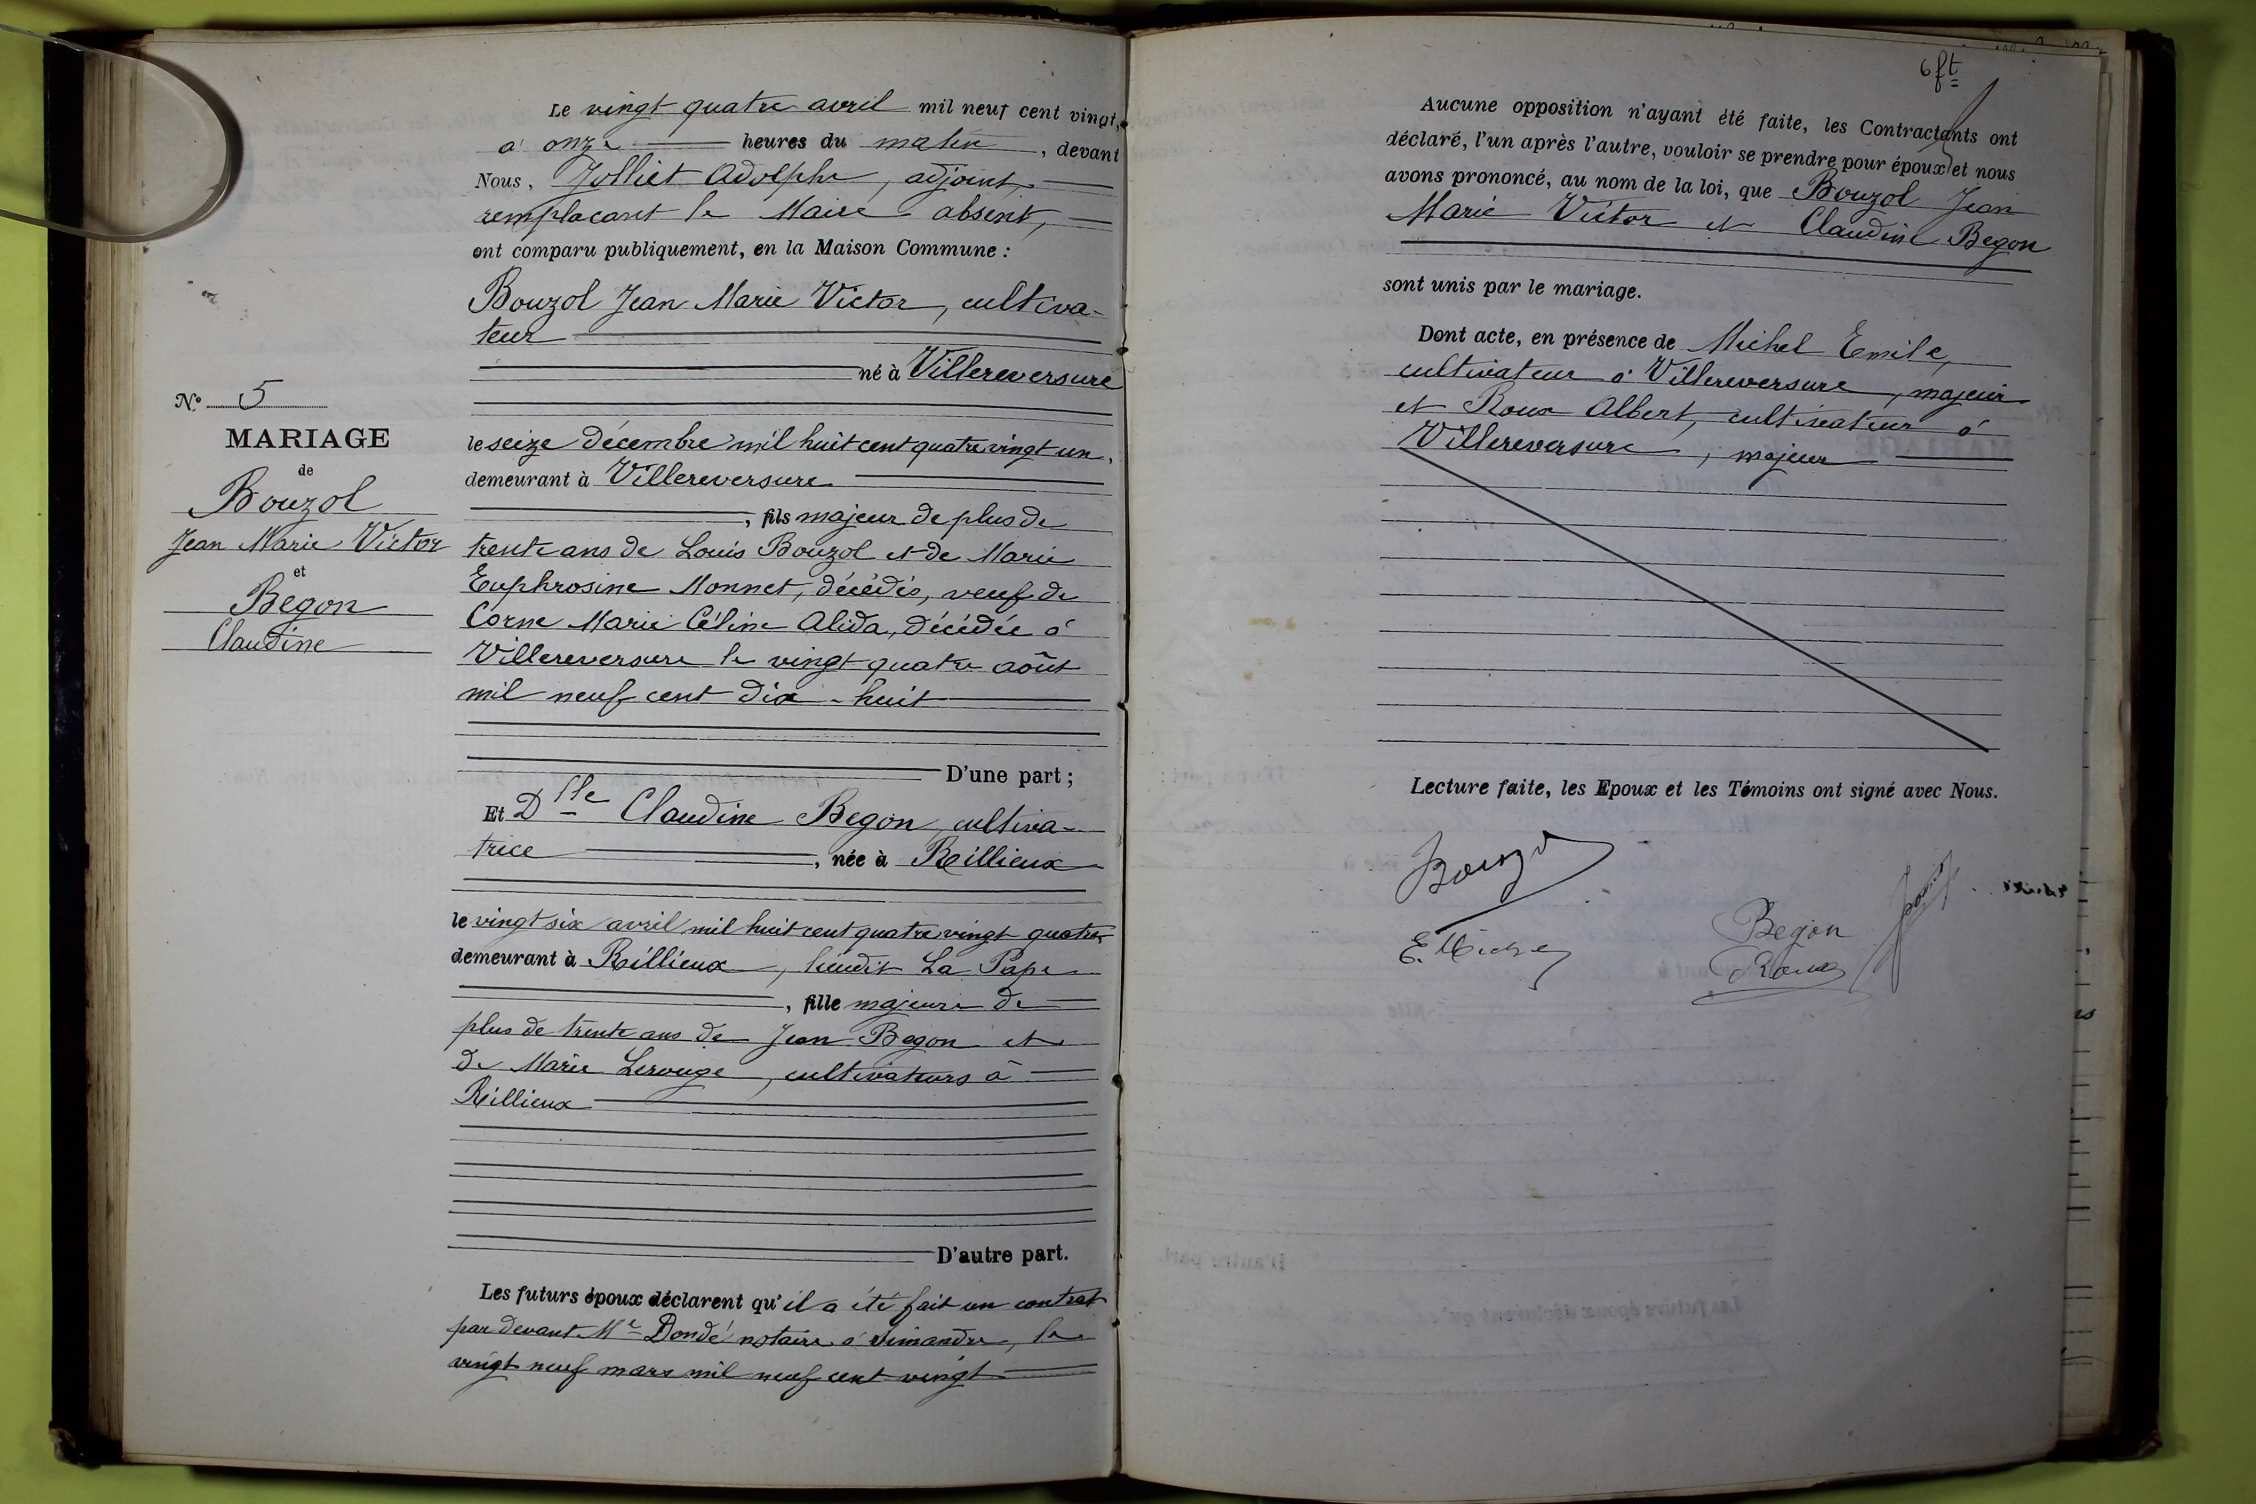 Le vingt quatre avril mil neuf cent vingt,
à onze heures du matin, devant
Nous, Jolliet Adolphe, adjoint,
remplacant le Maire absent,
ont comparu publiquement, en la Maison Commune :
Bouzol Jean Marie Victor, cultiva-
teur
né à Villereversure
le seize décembre mil huit cent quatre vingt un,
demeurant à Villereversure
, fils majeur de plus de
trente ans de Louis Bouzol et de Marie
Euphrosine Monnet, décédés, veuf de
Corne Marie Céline Alida, décédée à
Villereversure le vingt quatre août
mil neuf cent dix-huit
D'une part ;
Et Dlle Claudine Begon, cultiva-
trice, née à Rillieux
le vingt six avril mil huit cent quatre vingt quatre
demeurant à Rillieux, lieudit La Pape
, fille majeure de
plus de trente ans de Jean Begon et
de Marie Lerouge, cultivateurs à
Rillieux
D'autre part.
Les futurs époux déclarent qu'il a été fait un contrat
par devant Me Dondé notaire à Simandre, le
vingt neuf mars mil neuf cent vingt
No 5
MARIAGE
de
Bouzol
Jean Marie Victor
et
Begon
Claudine
6 ft
Aucune opposition n'ayant été faite, les Contractants ont
déclaré, l'un après l'autre, vouloir se prendre pour époux et nous
avons prononcé, au nom de la loi, que Bouzol Jean
Marie Victor et Claudine Begon
sont unis par le mariage.
Dont acte, en présence de Michel Emile,
cultivateur à Villereversure, majeur
et Roux Albert, cultivateur à
Villereversure, majeur
Lecture faite, les Epoux et les Témoins ont signé avec Nous.
Bouzol
E. Michel
Begon
Roux